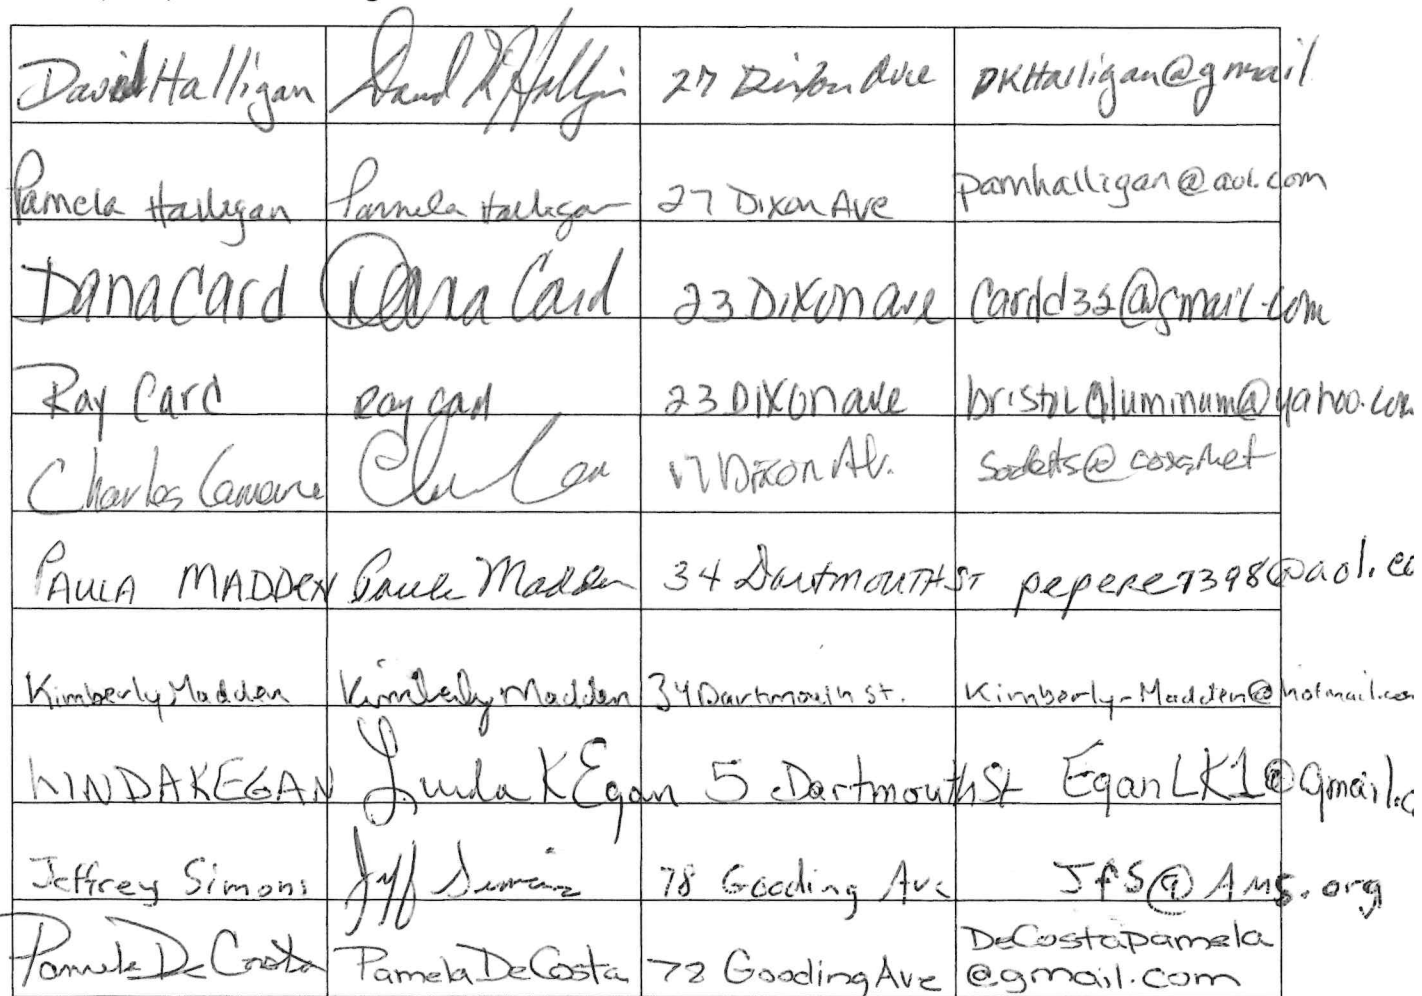 David Halligan David K Halligan 27 Dixon Ave DKHalligan@gmail
Pamela Halligan Pamela Halligan 27 Dixon Ave pamhalligan@aol.com
Dana Card Dana Card 23 Dixon ave cardd32@gmail.com
Ray Card Ray Card 23 Dixon ave bristolaluminum@yahoo.com
Charles 17 Dixon Av.
PAULA MADDEN Paula Madden 34 DartmOUTH ST pepere7398@aol.co
Kimberly Madden Kimberly Madden 34 Dartmouth St. Kimberly-Madden@hotmail.com
LINDA K EGAN Linda K Egan 5 Dartmouth St EganLK1@gmail.c
Jeffrey Simons Jeff Simons 78 Gooding Ave JFS@AMS.org
Pamela DeCosta Pamela DeCosta 78 Gooding Ave DeCostapamela
@gmail.com